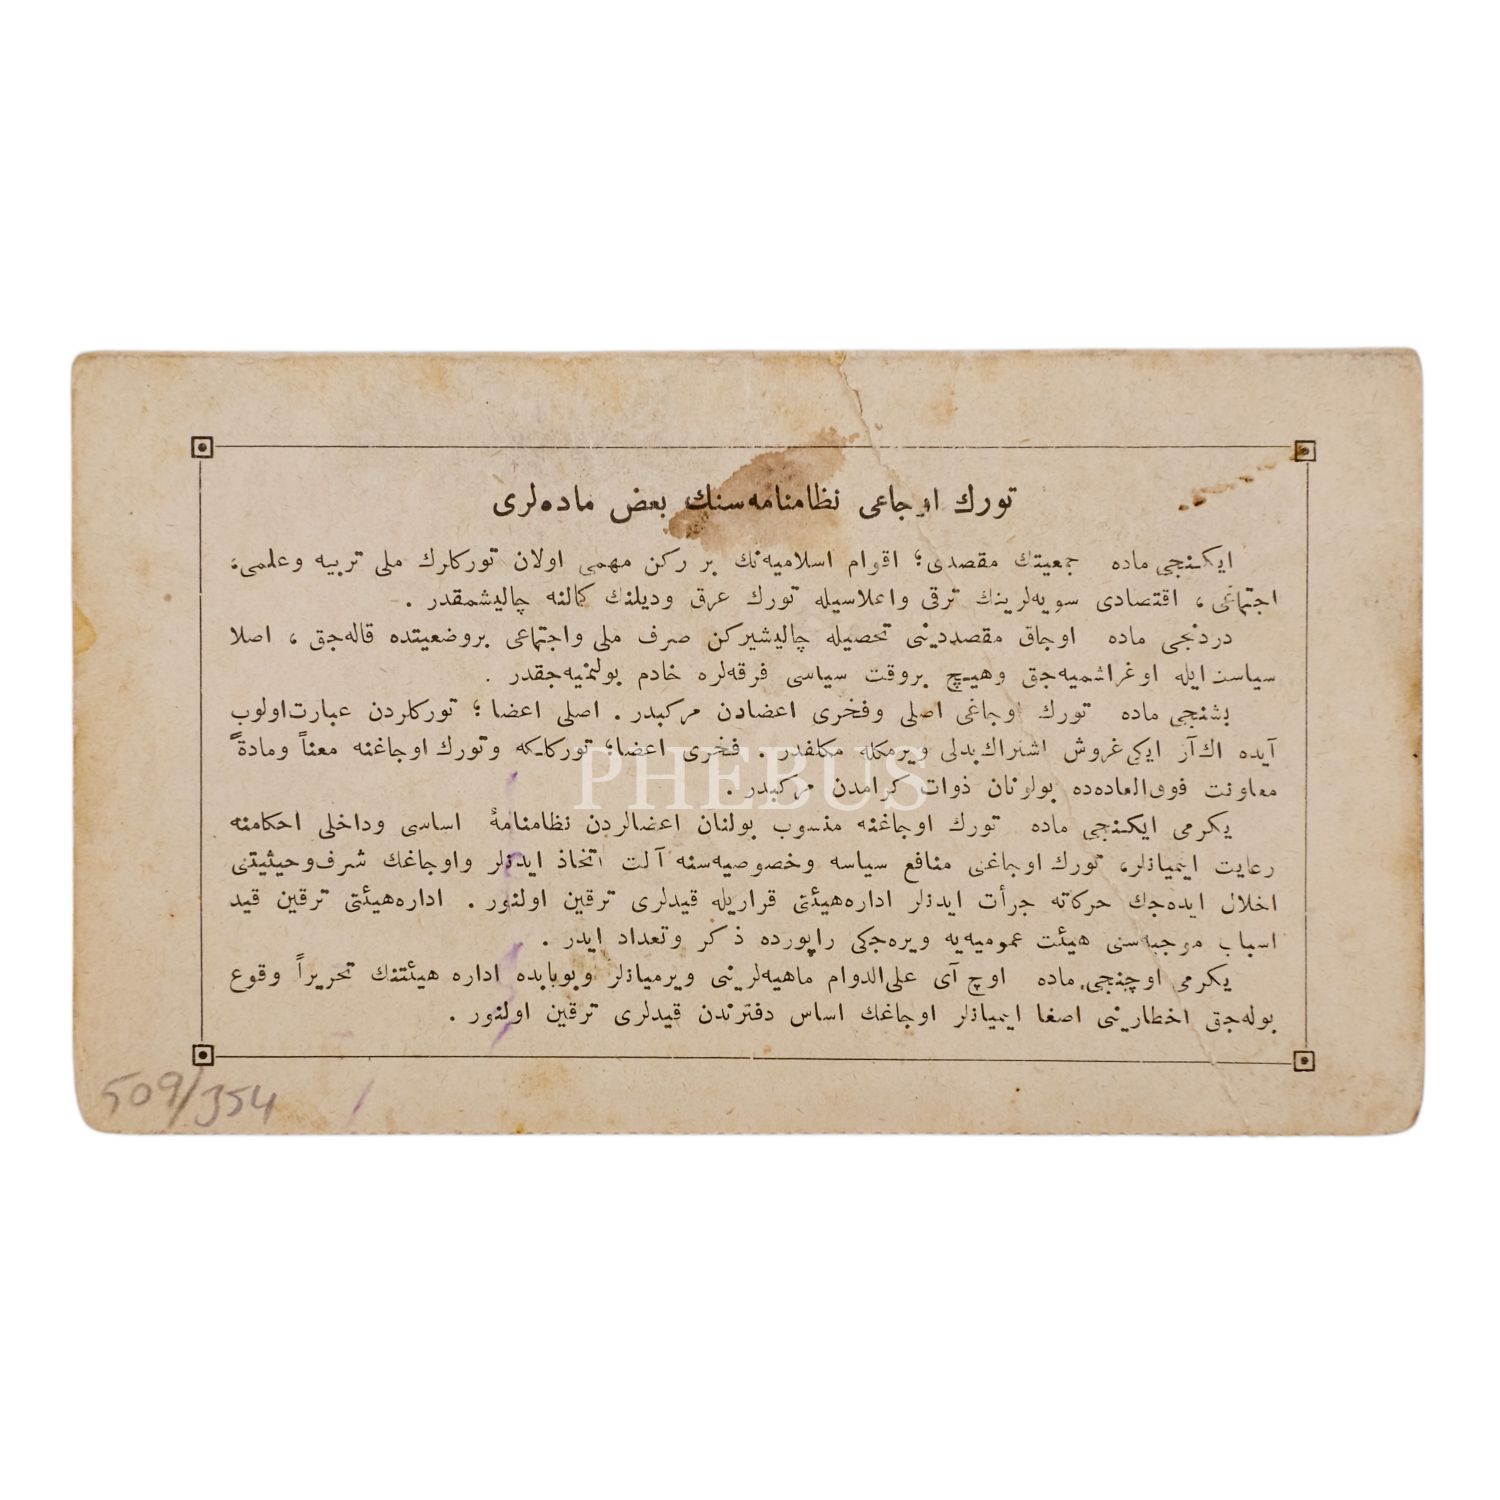 تورك اوجاغی نظامنامه‌سنك بعض ماده‌لری
ایكنجی ماده جمعیتك مقصدی؛ اقوام اسلامیه‌نك بر ركن مهمی اولان توركلرك ملی تربیه وعلمی،
اجتماعی، اقتصادی سویه‌لرینك ترقی واعلاسیله تورك عرق ودیلنك كمالنه چالیشمقدر.
دردنجی ماده اوجاق مقصدینی تحصیله چالیشیركن صرف ملی واجتماعی بروضعیتده قاله‌جق، اصلا
سیاست ایله اوغراشمیه‌جق وهیچ بروقت سیاسی فرقه‌لره خادم بولنمیه‌جقدر.
بشنجی ماده تورك اوجاغی اصلی وفخری اعضادن مركبدر. اصلی اعضا؛ توركلردن عبارت اولوب
آیده اك‌آز ایكی غروش اشتراك بدلی ویرمكله مكلفدر. فخری اعضا؛ توركلكه وتورك اوجاغنه معناً ومادةً
معاونت فوق‌العاده‌ده بولونان ذوات كرامدن مركبدر.
یكرمی ایكنجی ماده تورك اوجاغنه منسوب بولنان اعضالردن نظامنامهٔ اساسی وداخلی احكامنه
رعایت ایتمیانلر، تورك اوجاغنی منافع سیاسه وخصوصیه‌سنه آلت اتخاذ ایدنلر واوجاغك شرف‌وحیثیتنی
اخلال ایده‌جك حركاته جرأت ایدنلر اداره‌هیئتی قراریله قیدلری ترقین اولنور. اداره‌هیئتی ترقین قید
اسباب موجبه‌سنی هیئت عمومیه‌یه ویره‌جكی راپورده ذكر وتعداد ایدر.
یكرمی اوچنجی ماده اوچ آی علی‌الدوام ماهیه‌لرینی ویرمیانلر وبوبابده اداره هیئتنك تحریراً وقوع
بوله‌جق اخطارینی اصغا ایتمیانلر اوجاغك اساس دفترندن قیدلری ترقین اولنور.
PHEBUS
509/354